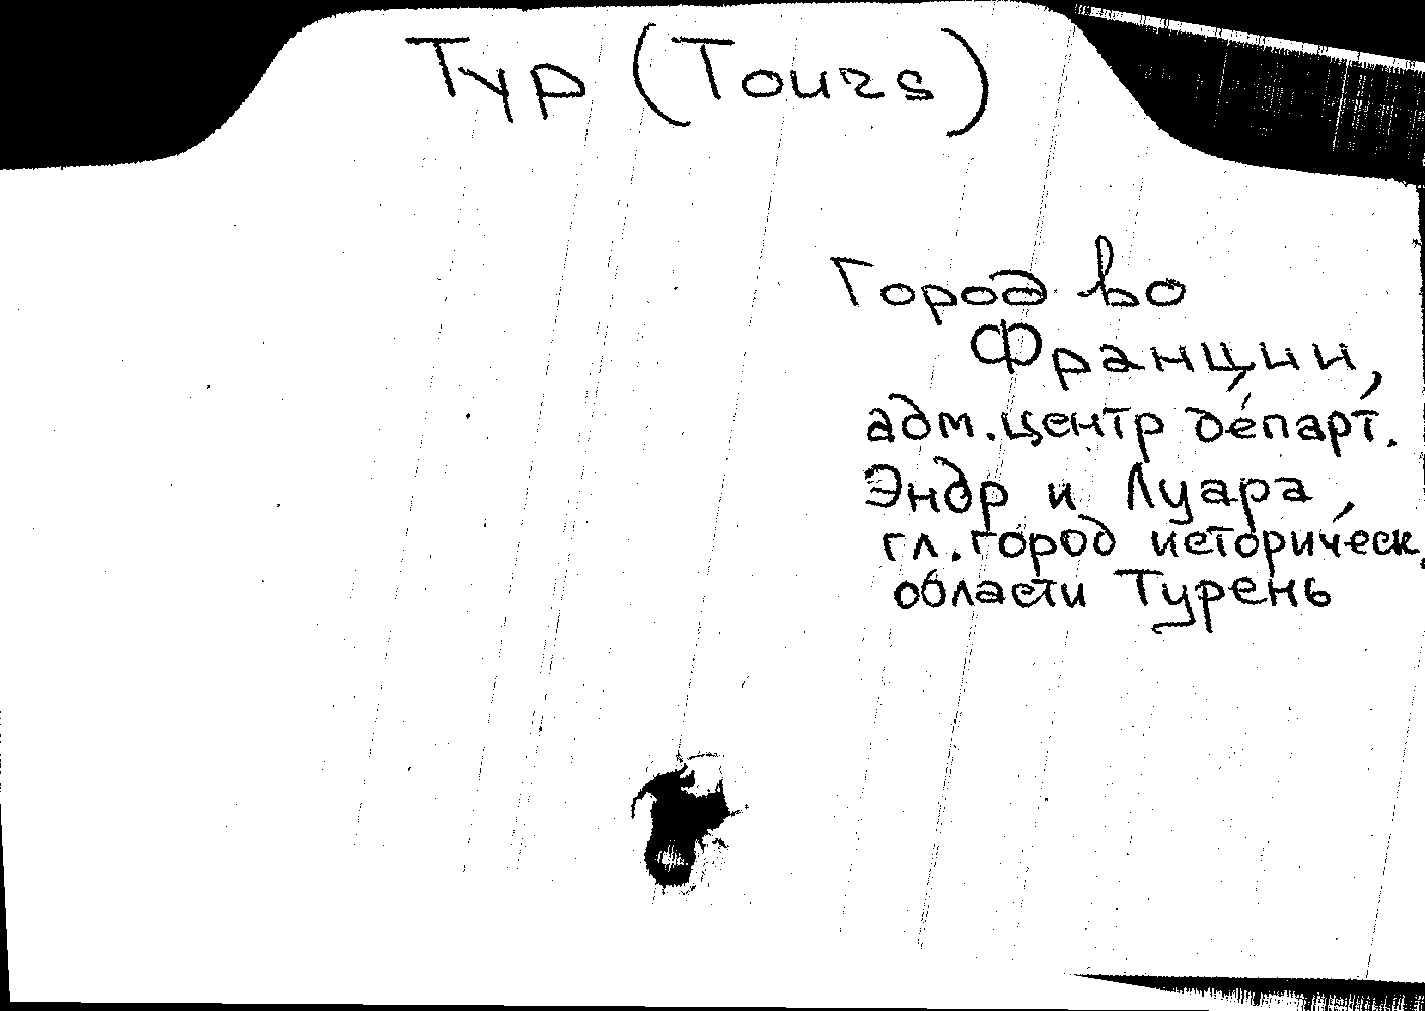 Тур (Tours)
Город во
Франции,
адм. центр департ.
Эндр и Луара,
гл. город историческ.
области Турень